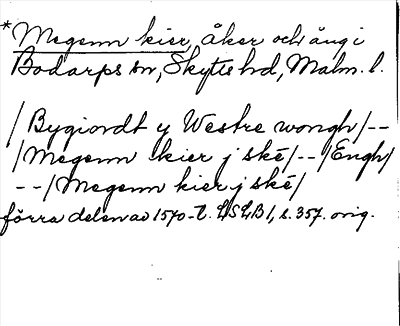 *Megenn kier, åker och äng i
Bodarps sn, Skytts hd, Malm. l.
/Bygiordt y Westre wongh/--
/Megenn kier j ske/--/Engh/
--/Megenn kier j ske/
förra delen av 1570-t. LSLB 1, s. 357. orig.